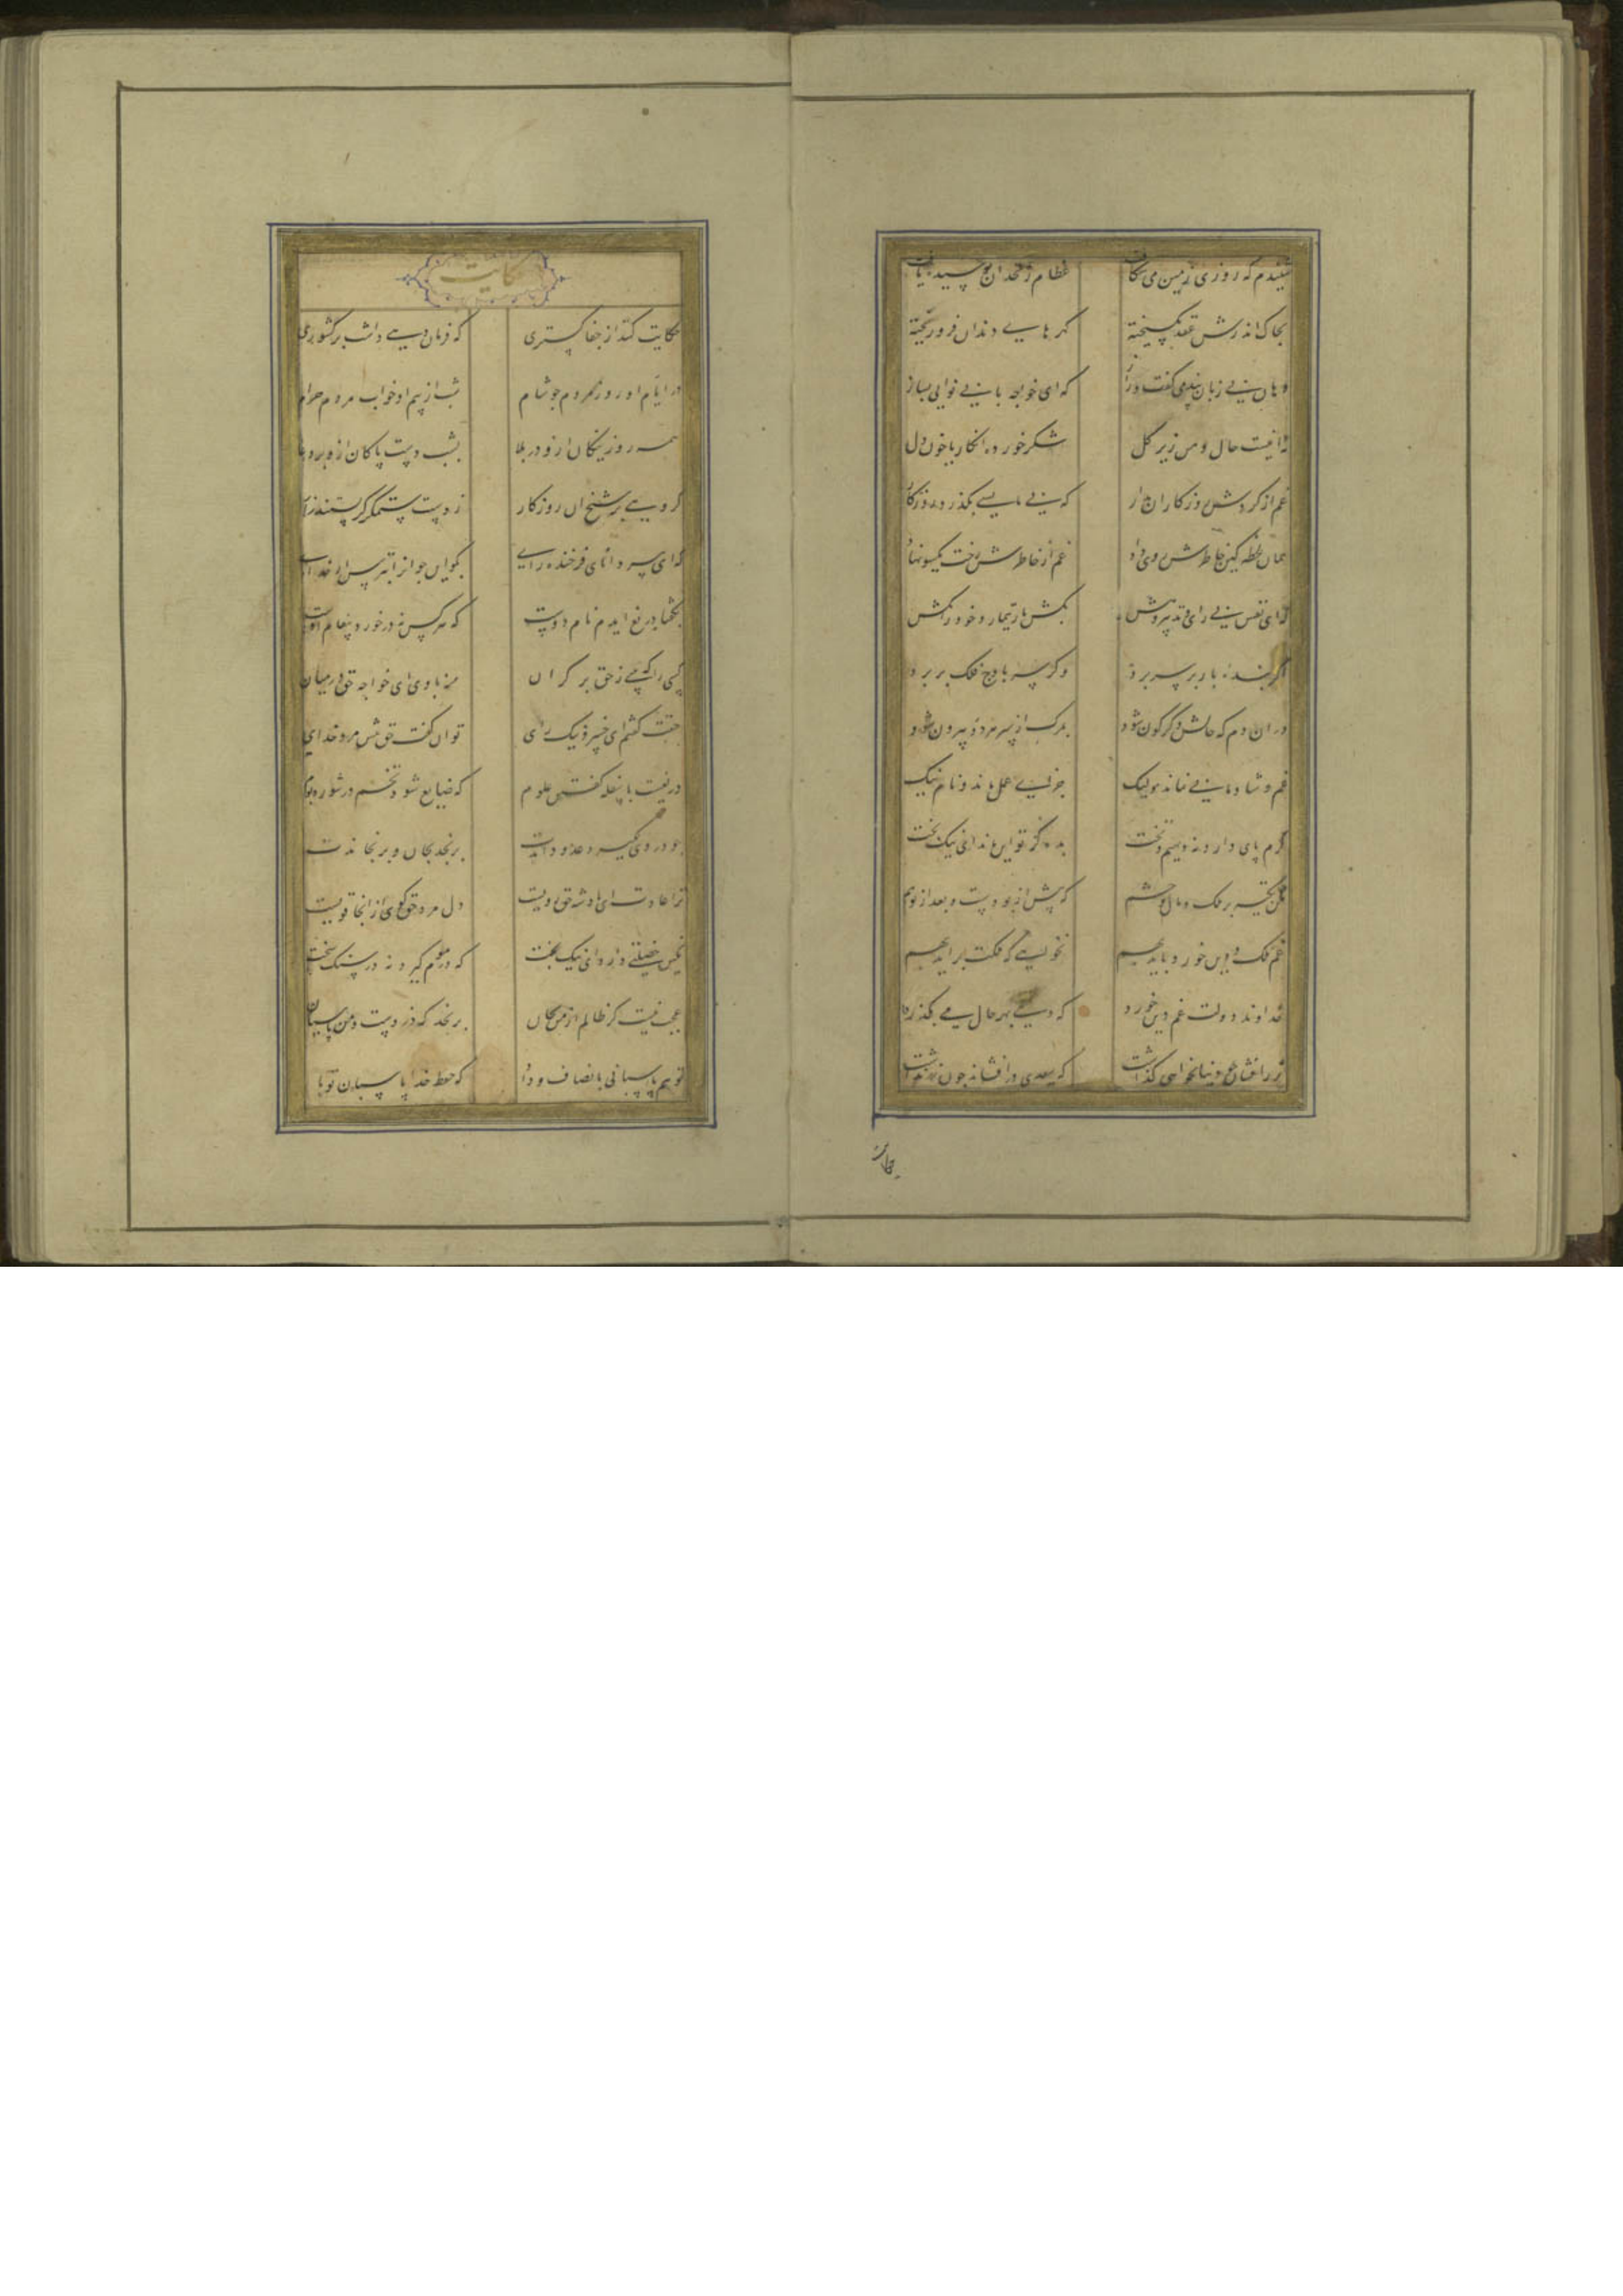 شنیدم که روزی زمین می شکافت عظام زنخدان پوسیده یافت
بخاک اندرش عقد بگسیخته گهرهایی دندان فرو ریخته
دهان بی زبان پند می گفت و راز که ای خواجه با بی نوایی بساز
نه اینست حال دهن زیر گل شکر خورده انگار یا خون دل
غم از گردش روزگاران مدار که بی ما بسی بگذرد روزگار
همان لحظه کین خاطرش روی داد غم از خاطرش رخت یکسو نهاد
که ای نفس بی رای و تدبیر و هش بکش بار تیمار و خود را مکش
اگر بنده بار بر سر برد وگر سر باوج فلک بر برد
در ان دم که حالش دگرگون شود بمرگ از سر هر دو بیرون شود
غم و شادمانی نماند ولیک جزای عمل ماند و نام نیک
کرم پای دارد نه دیهیم و تخت بده کز تو این ماند ای نیک بخت
مکن تکیه بر ملک و مال و حشم که پیش از تو بودست و بعد از تو هم
غم ملک و دین خورد باید بهم نخواهی که ملکت براید بهم
خداوند دولت غم دین خورد که دنیی بهر حال می بگذرد
زر افشان چو دنیا بخواهی گذاشت که سعدی در افشاند چون زر نداشت
حکایت
حکایت
حکایت کنند از جفا گستری که فرماندهی داشت بر کشوری
در ایام او روز مردم چو شام شب از بیم او خواب مردم حرام
همه روز نیکان ازو در بلا بشب دست پاکان ازو بر دعا
گروهی بر شیخ ان روزگار ز دست ستمگر گرستند زار
که ای پیر دانای فرخنده رای بگو این جوان را بترس از خدای
بگفتا دریغ ایدم نام دوست که هر کس نه در خورد پیغام اوست
کسی را که بینی ز حق بر کران منه با وی ای خواجه حق در میان
حقت گفتم ای خسرو نیک رای توان گفت حق پیش مرد خدای
دریغست با سفله گفتن علوم که ضایع شود تخم در شوره بوم
چو در وی نگیرد عدو داندت برنجد بجان و برنجاندت
ترا عادت ای پادشه حق رویست دل مرد حق گوی از انجا قویست
نگین خصلتی دارد ای نیک بخت که در موم گیرد نه در سنگ سخت
عجب نیست گر ظالم از من بجان برنجد که دزدست و من پاسبان
تو هم پاسبانی بانصاف و داد که حفظ خدا پاسبان تو باد